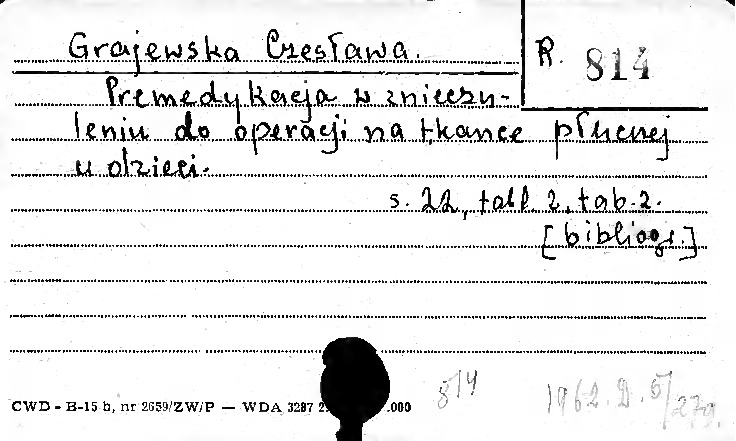 Grajewska Czesława.
R. 814
Premedykacja w znieczu-
leniu do operacji na tkance płucnej
u dzieci.
s. 22, tabl 2, tab. 2.
[bibliogr.]
814
1962. D. 5/279.
CWD - B-15 b, nr 2659/ZW/P — WDA 3287 .000